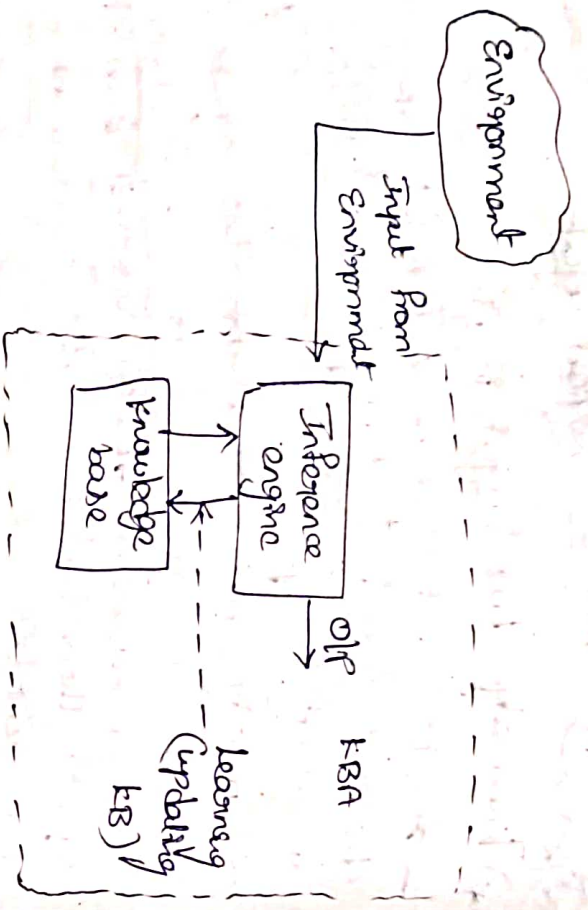 Environment
Input from
Environmdt
Inference
engine
O/P
KBA
Knowledge
base
Learning
(updating
KB)